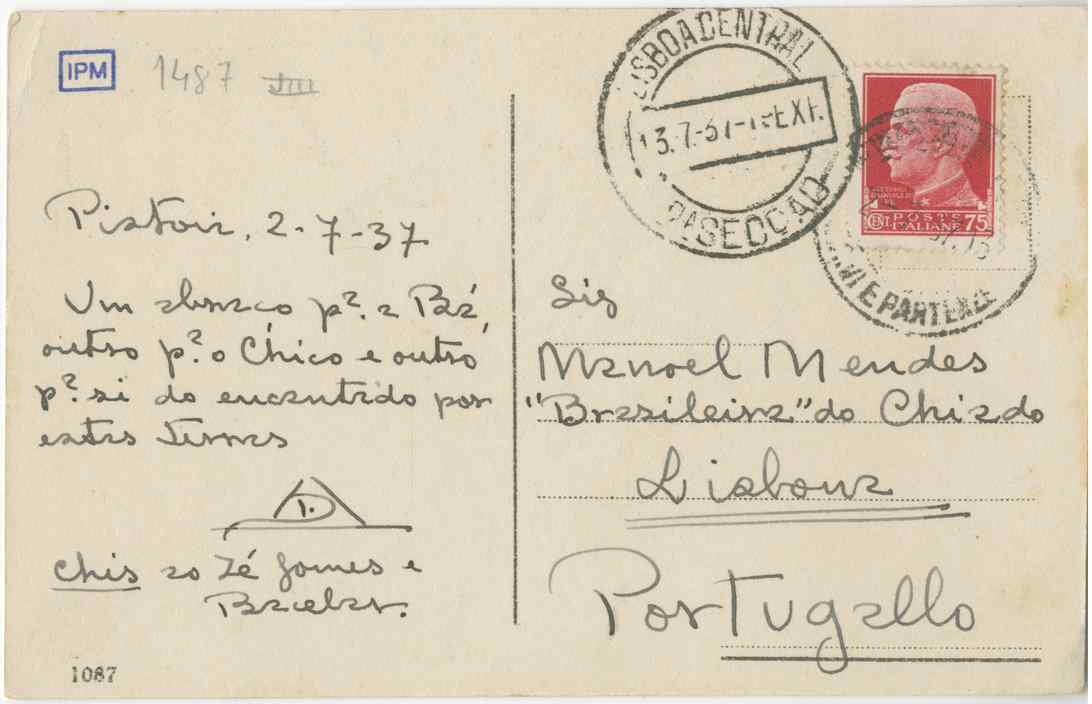 IPM
1487
LISBOA CENTRAL
13.7.37
EXP.
SECÇÃO
POSTE
ITALIANE
CENT. 75
ARRIVI E PARTENZE
Pistoia, 2-7-37
Um abraço pª. a Bá,
outro pª. o Chico e outro
pª. si do encantado por
estas terras
D.
chis ao Zé Gomes e
Bacelar.
1087
Sig
Manoel Mendes
"Brasileira" do Chiado
Lisbona
Portugallo